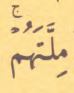 مِلَّتَهُمْ ۚ